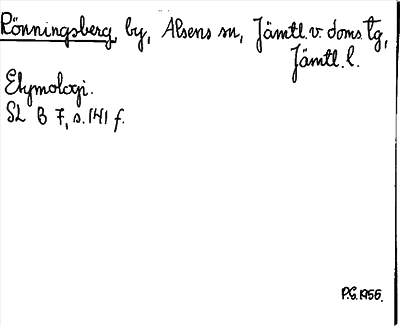 Rönningsberg, by, Alsens sn, Jämtl. v. doms. tg,
Jämtl. l.
Etymologi.
SL B 7, s. 141 f.
P.G. 1955.